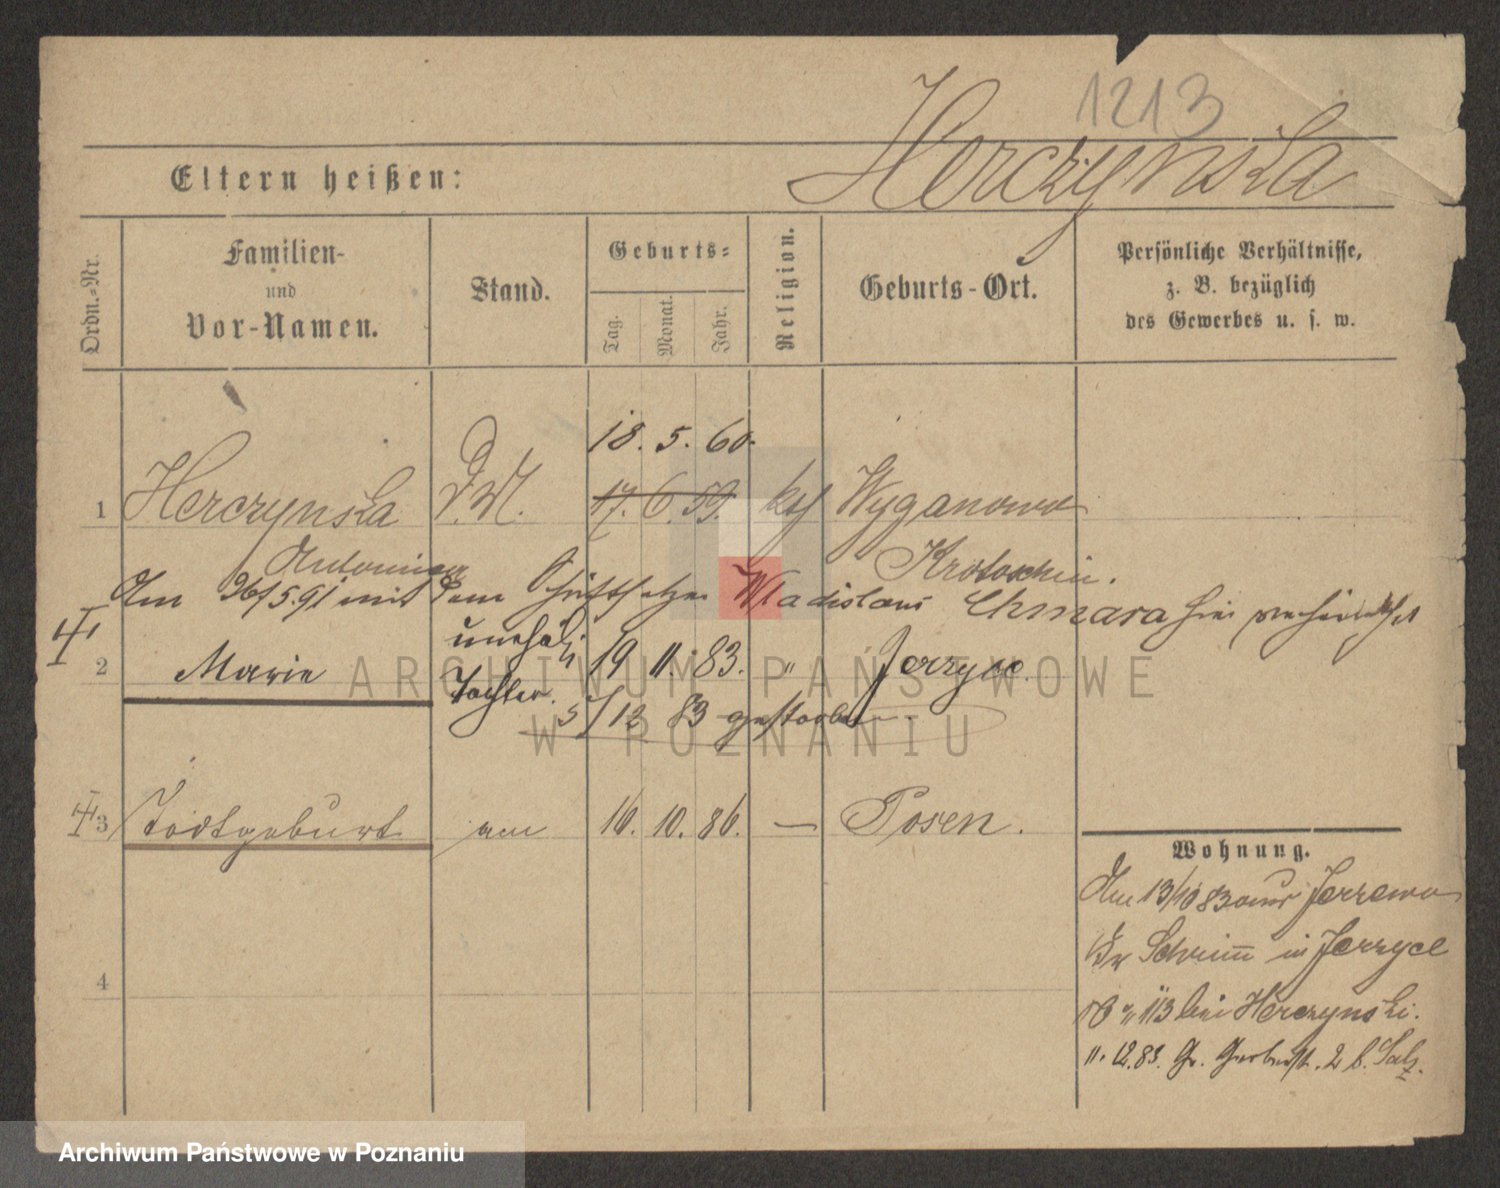 1213
Herczynska
Eltern heißen:
Ordn.-Nr.
Familien-
und
Vor-Namen.
Stand.
Geburts-
Tag.
Monat.
Jahr.
Religion.
Geburts-Ort.
Persönliche Verhältnisse,
z. B. bezüglich
des Gewerbes u. s. w.
18. 5. 60.
1 Herczynska D.M. 17. 6. 59. kth Wyganowo
Antonina Krotoschin.
Am 26/5.91 mit dem Schriftsetzer Wladislaus Chmara hier verheirathet
2 Marie unehel. 19 11. 83. " Jerzyce.
Tochter.
5/12 83 gestorben
3 Todtgeburt am 16. 10. 86. — Posen.
4
Wohnung.
Am 13/10 83 aus Jerzewo
Kr Schrimm in Jerzyce
113 bei Herczynski.
11. 12. 83. Gr. Gerberstr. 2 b.
ARCHIWUM PAŃSTWOWE
W POZNANIU
Archiwum Państwowe w Poznaniu